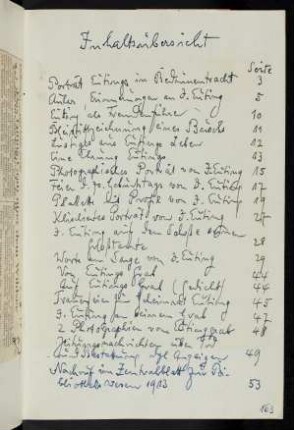 Inhaltsübersicht
Seite
Porträt Eutings in Beduinentracht 3
Erinnerungen an J. Euting 5
Euting als Fremdenführer 10
Bleistiftzeichnung eines 11
Lustiges aus Eutings Leben 12
Eine Ehrung Eutings 13
Photographisches Porträt von J. Euting 15
Feier d. 70. Geburtstags von J. Euting 17
Plakette mit Profil von J. Euting 19
Porträt von J. Euting 27
J. Euting auf dem Schoße seiner
28
Worte am Sarge von J. Euting 29
Von Eutings Grab 44
Auf Eutings Grab (Gedicht) 44
Trauerfeier für Geheimrat Euting 45
J. Euting an seinem Grab 47
2 Photographien vom Eutinggrab 48
Zeitungsnachrichten über Tod
und Bestattung Anzeigen 49
Nachruf im Zentralblatt für Bi-
bliothekswesen 1913 53
163